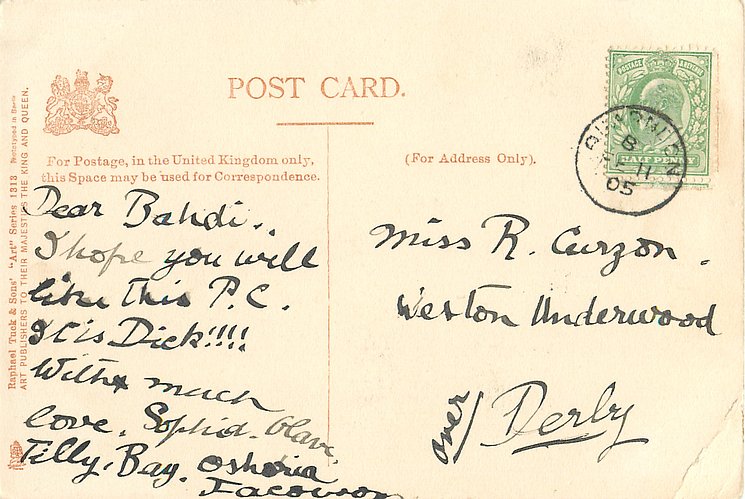 POST CARD.
For Postage, in the United Kingdom only,
this Space may be used for Correspondence.
(For Address Only).
POSTAGE REVENUE
HALF PENNY
8
FE 11
05
Dear Bahdi..
I hope you will
like this P.C.
It is Dick!!!!
With much
love. Sophid. Olave.
Tilly. Bay.
Miss R. Curzon.
Weston Underwood
over/ Derby
Raphael Tuck & Sons' "Art" Series 1313
ART PUBLISHERS TO THEIR MAJESTIES THE KING AND QUEEN.